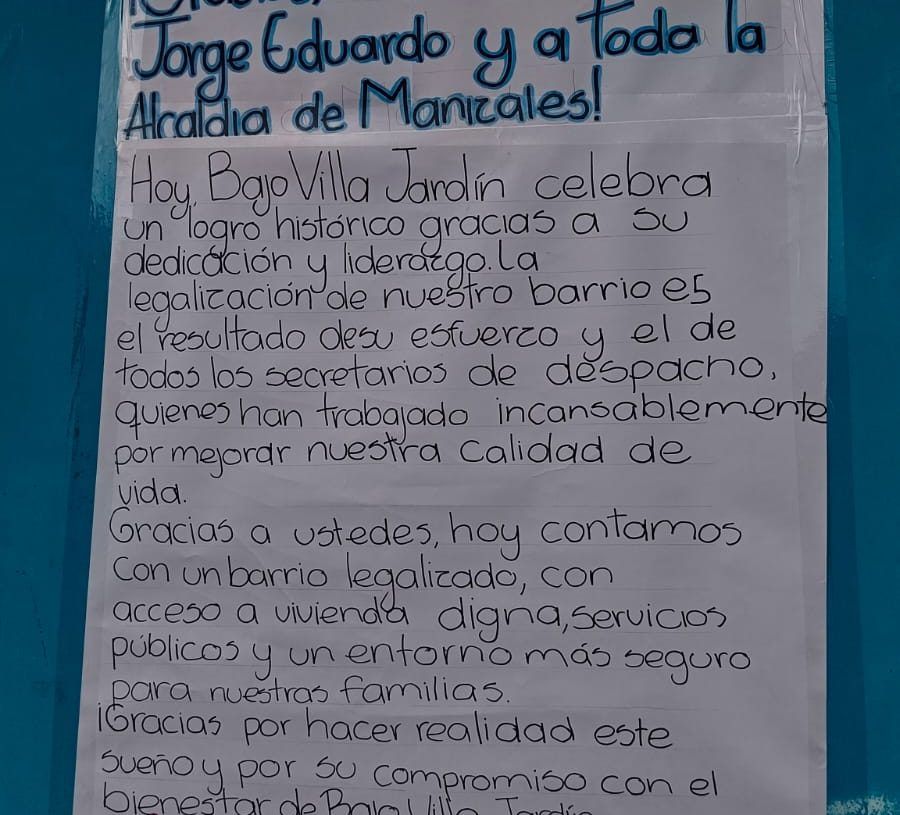 Jorge Eduardo y a Toda la
Alcaldia de Manizales!
Hoy, Bajo Villa Jardín celebra
un logro histórico gracias a su
dedicación y liderazgo. La
legalización de nuestro barrio es
el resultado de su esfuerzo y el de
todos los secretarios de despacho,
quienes han trabajado incansablemente
por mejorar nuestra calidad de
vida.
Gracias a ustedes, hoy contamos
con un barrio legalizado, con
acceso a vivienda digna, servicios
públicos y un entorno más seguro
para nuestras familias.
¡Gracias por hacer realidad este
sueño y por su compromiso con el
bienestar de Bajo Villa Jardín